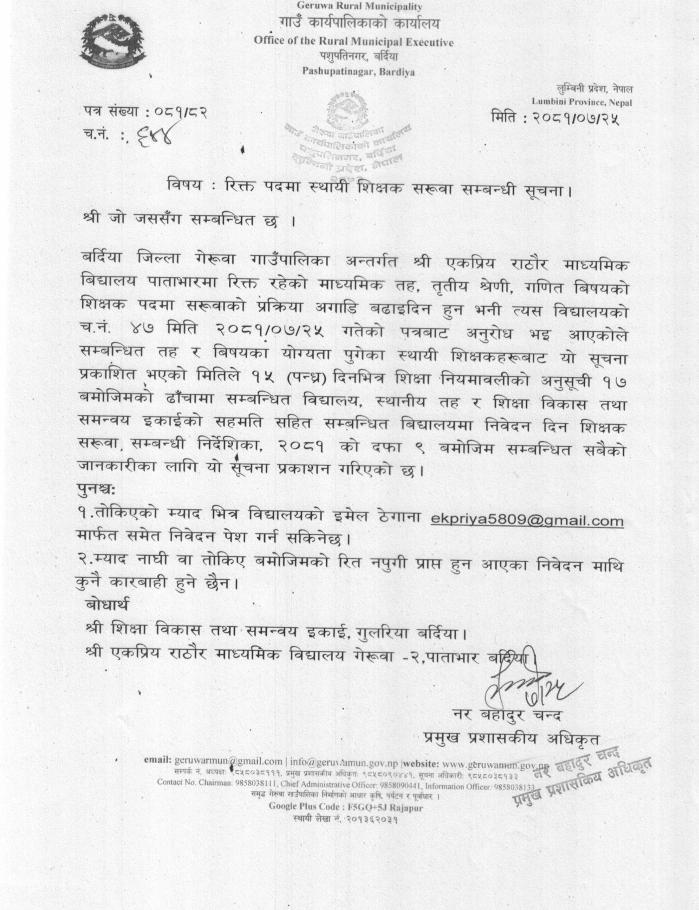 Geruwa Rural Municipality
गाउँ कार्यपालिकाको कार्यालय
Office of the Rural Municipal Executive
पशुपतिनगर, बर्दिया
Pashupatinagar, Bardiya
लुम्बिनी प्रदेश, नेपाल
Lumbini Province, Nepal
पत्र संख्या : ०८१/८२
मिति : २०८१/०७/२५
च.नं. : ६४४
गेरुवा गाउँपालिका
गाउँ कार्यपालिकाको कार्यालय
पशुपतिनगर, बर्दिया
लुम्बिनी प्रदेश, नेपाल
विषय : रिक्त पदमा स्थायी शिक्षक सरूवा सम्बन्धी सूचना।
श्री जो जससँग सम्बन्धित छ ।
बर्दिया जिल्ला गेरूवा गाउँपालिका अन्तर्गत श्री एकप्रिय राठौर माध्यमिक
बिद्यालय पाताभारमा रिक्त रहेको माध्यमिक तह, तृतीय श्रेणी, गणित बिषयको
शिक्षक पदमा सरूवाको प्रक्रिया अगाडि बढाइदिन हुन भनी त्यस विद्यालयको
च.नं. ४७ मिति २०८१/०७/२५ गतेको पत्रबाट अनुरोध भइ आएकोले
सम्बन्धित तह र बिषयका योग्यता पुगेका स्थायी शिक्षकहरूबाट यो सूचना
प्रकाशित भएको मितिले १५ (पन्ध्र) दिनभित्र शिक्षा नियमावलीको अनुसूची १७
बमोजिमको ढाँचामा सम्बन्धित विद्यालय, स्थानीय तह र शिक्षा विकास तथा
समन्वय इकाईको सहमति सहित सम्बन्धित बिद्यालयमा निवेदन दिन शिक्षक
सरूवा सम्बन्धी निर्देशिका, २०८१ को दफा ९ बमोजिम सम्बन्धित सबैको
जानकारीका लागि यो सूचना प्रकाशन गरिएको छ।
पुनश्च:
१.तोकिएको म्याद भित्र विद्यालयको इमेल ठेगाना ekpriya5809@gmail.com
मार्फत समेत निवेदन पेश गर्न सकिनेछ।
२.म्याद नाघी वा तोकिए बमोजिमको रित नपुगी प्राप्त हुन आएका निवेदन माथि
कुनै कारबाही हुने छैन।
बोधार्थ
श्री शिक्षा विकास तथा समन्वय इकाई, गुलरिया बर्दिया।
श्री एकप्रिय राठौर माध्यमिक विद्यालय गेरूवा -२,पाताभार बर्दिया।
नर बहादुर चन्द
प्रमुख प्रशासकीय अधिकृत
email: geruwarmun@gmail.com | info@geruwamun.gov.np |website: www.geruwamun.gov.np
सम्पर्क नं. अध्यक्षः ९८५८०३८१११, प्रमुख प्रशासकीय अधिकृतः ९८५८०९०४४१, सूचना अधिकारीः ९८५८०३८१३३
Contact No. Chairman: 9858038111, Chief Administrative Officer: 9858090441, Information Officer: 9858038133
समृद्ध गेरुवा गाउँपालिका निर्माणको आधार कृषि, पर्यटन र पूर्वाधार ।
Google Plus Code : F5GQ+5J Rajapur
स्थायी लेखा नं. २०१३६२०३१
नर बहादुर चन्द
प्रमुख प्रशासकिय अधिकृत